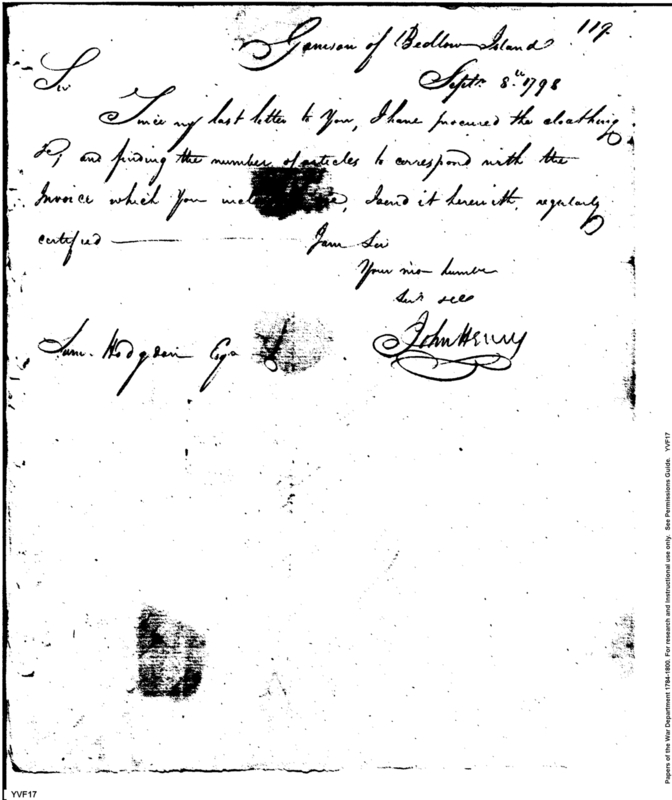 119
Garrison of Bedlow Island
Septr. 8.th 1798
Sir
Since my last letter to You, I have procured the cloathing
&c, and finding the number of articles to correspond with the
Invoice which You me, I send it herewith, regularly
certified
I am Sir
Your mo humbe
Servt
Sam. Hodgden Esqr
John Henry
Papers of the War Department 1784-1800. For research and instructional use only. See Permissions Guide. YVF17
YVF17